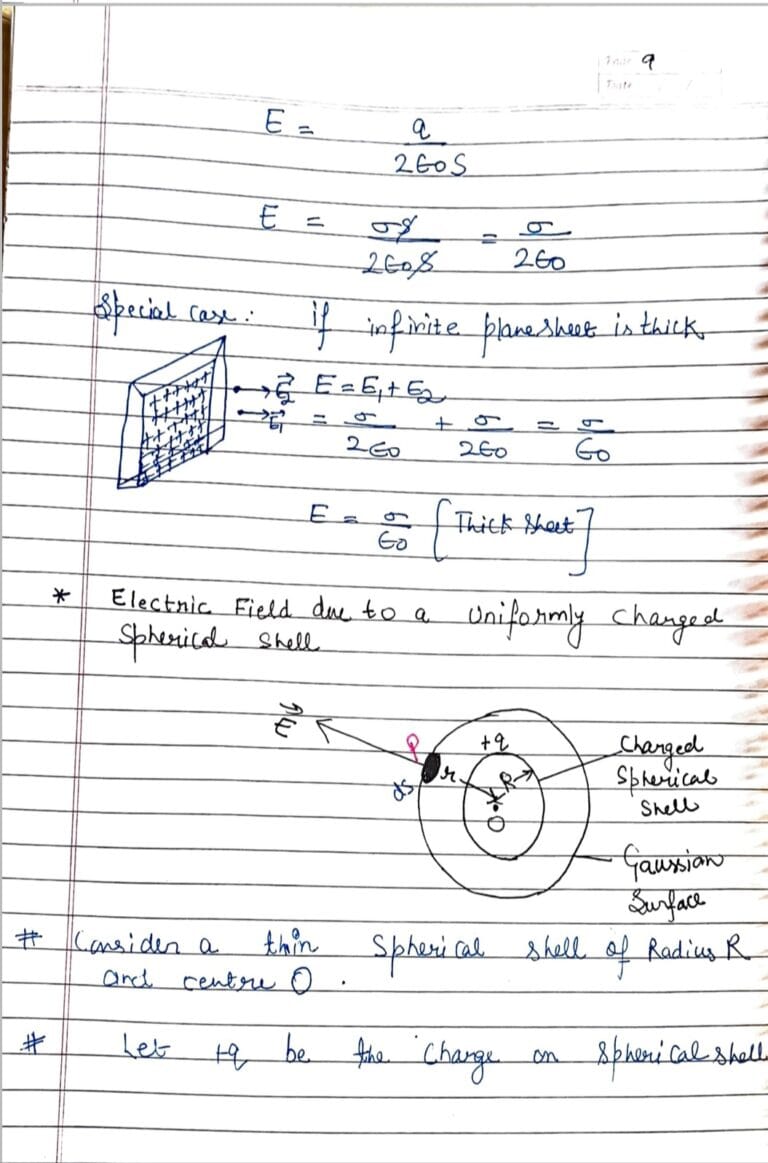 Page 9
Date
E = q / 2ε0S
E = σS / 2ε0S = σ / 2ε0
Special case: if infinite plane sheet is thick
E⃗2 E = E1 + E2
E⃗1 = σ / 2ε0 + σ / 2ε0 = σ / ε0
E = σ / ε0 [Thick Sheet]
* Electric Field due to a Uniformly Charged
Spherical Shell
E⃗ P +q Charged
dS r R Spherical
Shell
O
Gaussian
Surface
# Consider a thin Spherical shell of Radius R
and centre O.
# Let +q be the Charge on Spherical shell